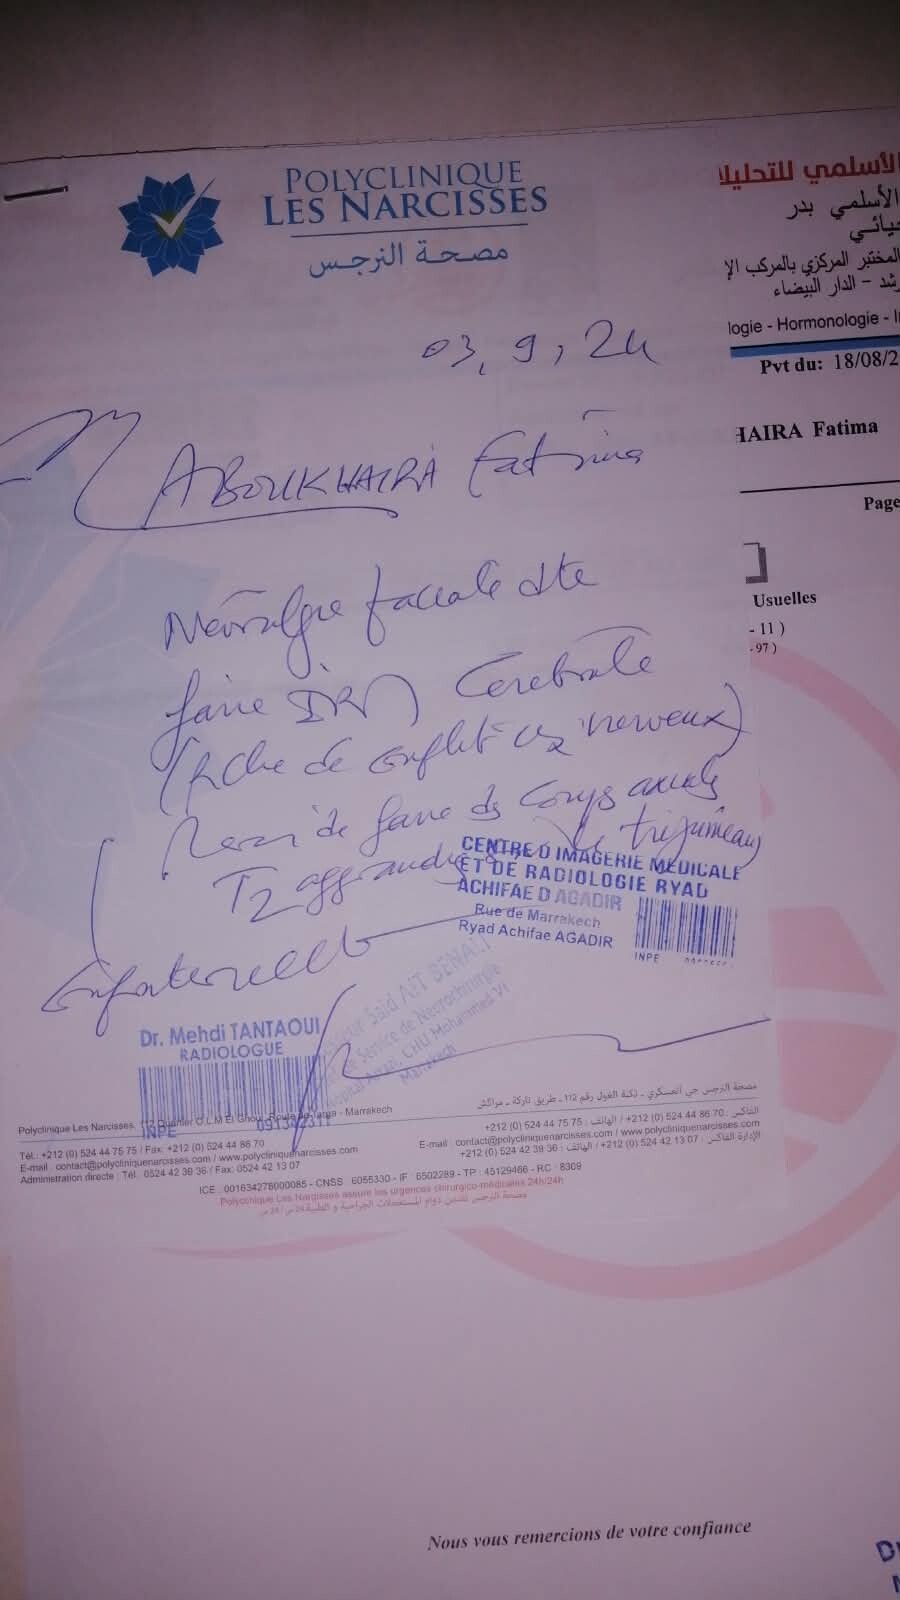 POLYCLINIQUE
LES NARCISSES
مصحة النرجس
03, 9, 24
ABOUKHAIRA Fatima
Névralgie faciale dte
faire IRM Cérébrale
(Rche de conflit vx nerveux)
Merci de faire des coups axiales
T2 aggrandis le trijumeau
CENTRE D'IMAGERIE MEDICALE
ET DE RADIOLOGIE RYAD
ACHIFAE D'AGADIR
Rue de Marrakech
Ryad Achifae AGADIR
INPE
Said AIT BENALI
Service de Neurochirurgie
CHU Mohammed VI
Marrakech
Dr. Mehdi TANTAOUI
RADIOLOGUE
INPE 091342311
Polyclinique Les Narcisses, 112 Quartier O.L.M El Ghoul, Route de Targa - Marrakech
Tél.: +212 (0) 524 44 75 75 / Fax: +212 (0) 524 44 86 70
E-mail : contact@polycliniquenarcisses.com / www.polycliniquenarcisses.com
Administration directe : Tél.: 0524 42 39 36 / Fax: 0524 42 13 07
مصحة النرجس حي العسكري - ثكنة الغول رقم 112 - طريق تاركة - مراكش
الهاتف : 75 75 44 524 (0) 212+ / الفاكس : 70 86 44 524 (0) 212+
E-mail : contact@polycliniquenarcisses.com / www.polycliniquenarcisses.com
الإدارة الهاتف : 36 39 42 524 (0) 212+ / الفاكس : 07 13 42 524 (0) 212+
ICE : 001634278000085 - CNSS : 6055330 - IF : 6502289 - TP : 45129466 - RC : 8309
Polyclinique Les Narcisses assure les urgences chirurgico-médicales 24h/24h
الأسلمي للتحليلا
الأسلمي بدر
حيائي
المختبر المركزي بالمركب الإ
رشد - الدار البيضاء
logie - Hormonologie - I
Pvt du: 18/08/2
HAIRA Fatima
Page
Usuelles
- 11 )
- 97 )
Nous vous remercions de votre confiance